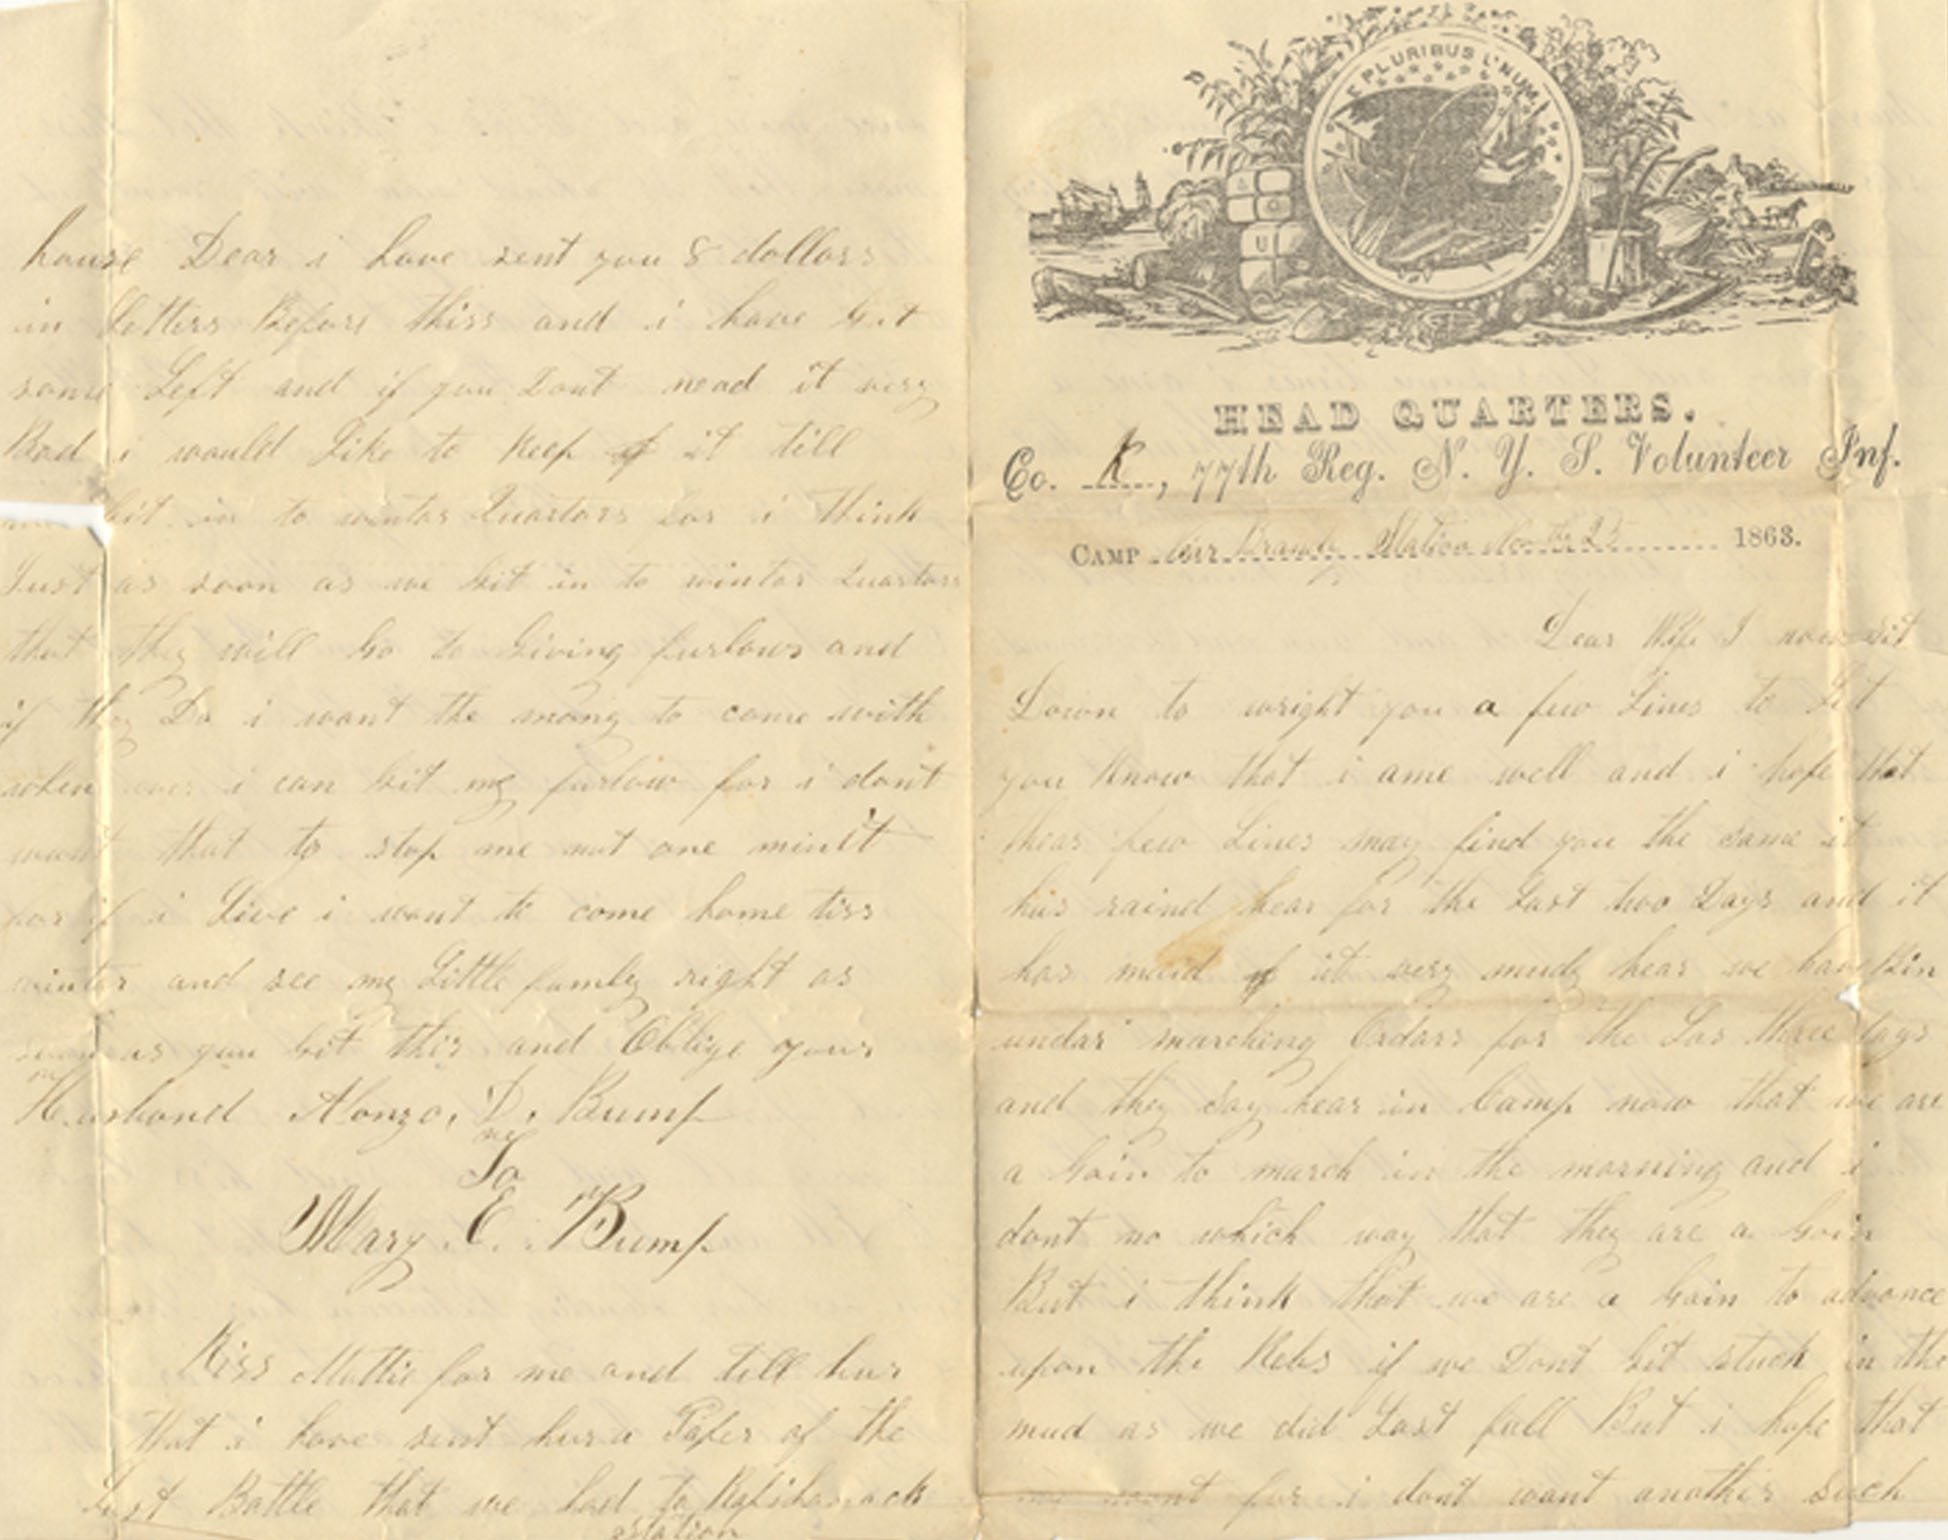 house Dear i have sent you 8 dollars
in Letters Before thiss and i have Git
some Left and if you Dont nead it very
Bad i would Like to Keep of it till
Git in to winter Quarters for i think
Just as soon as we Git in to winter Quarters
that they will Go to Giving furlows and
if they Do i want the mony to come with
when ever i can Git my furlow for i dont
want that to stop me not one minit
for if i Live i want to come home tiss
winter and see my Little famly right as
soon as you Git this and Oblige your
Husband Alonzo, D, Bump
To
Mary E. Bump
Kiss Mattie for me and till hur
that i have sent hur a Paper of the
Last Battle that we had to Rapihanock
station
E PLURIBUS UNUM
U
HEAD QUARTERS.
Co. K, 77th Reg. N. Y. S. Volunteer Inf.
CAMP Near Brandy Station Nov the 25 1863.
Dear Wife I now sit
Down to wright you a few Lines to Let
you Know that i ame well and i hope that
thear few Lines may find you the same it
his raind hear for the Last two Days and it
has maid of it very mudy hear we have Bin
undar marching Ordars for the Las three Days
and they say hear in Camp now that we are
a Goin to march in the morning and i
dont no which way that they are a Goin
But i think that we are a Goin to advance
upon the Rebs if we Dont Git stuck in the
mud as we did Last fall But i hope that
we wont for i dont want another such